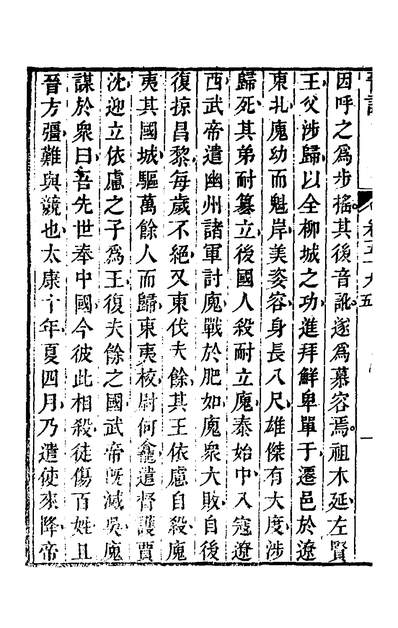 因呼之爲步搖其後音訛遂爲慕容焉祖木延左賢
王父涉歸以全柳城之功進拜鮮卑單于遷邑於遼
東北廆幼而魁岸美姿容身長八尺雄傑有大度涉
歸死其弟耐簒立後國人殺耐立廆泰始中入寇遼
西武帝遣幽州諸軍討廆戰於肥如廆衆大敗自後
復掠昌黎每歲不絕又東伐夫餘其王依慮自殺廆
夷其國城驅萬餘人而歸東夷校尉何龕遣督護賈
沈迎立依慮之子爲王復夫餘之國武帝旣滅吳廆
謀於衆曰吾先世奉中國今彼此相殺徒傷百姓且
晉方彊難與競也太康十年夏四月乃遣使來降帝
卷五十九五